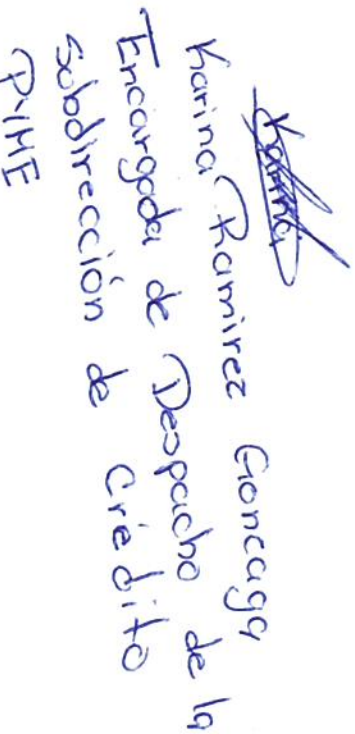 Karina
Karina Ramirez Goncaga
Encargada de Despacho de la
Subdirección de Crédito
PYME